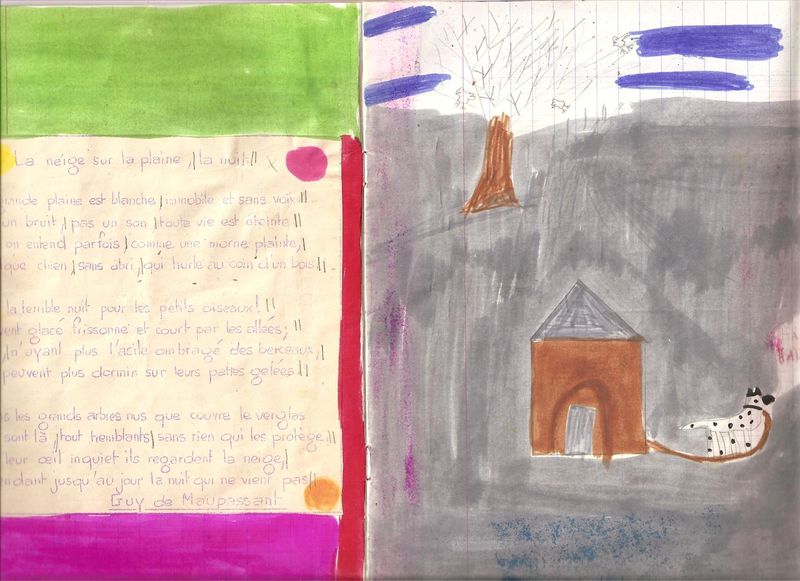 La neige sur la plaine, la nuit
ande plaine est blanche, immobile et sans voix.
un bruit, pas un son, toute vie est éteinte
on entend parfois, comme une morne plainte,
que chien, sans abri, qui hurle au coin d'un bois.
la terrible nuit pour les petits oiseaux!
vent glacé frissonne et court par les allées;
n'ayant plus l'asile ombragé des berceaux,
peuvent plus dormir sur leurs pattes gelées.
s les grands arbres nus que couvre le verglas
sont là, tout tremblants, sans rien qui les protège.
leur œil inquiet ils regardent la neige,
ndant jusqu'au jour la nuit qui ne vient pas
Guy de Maupassant